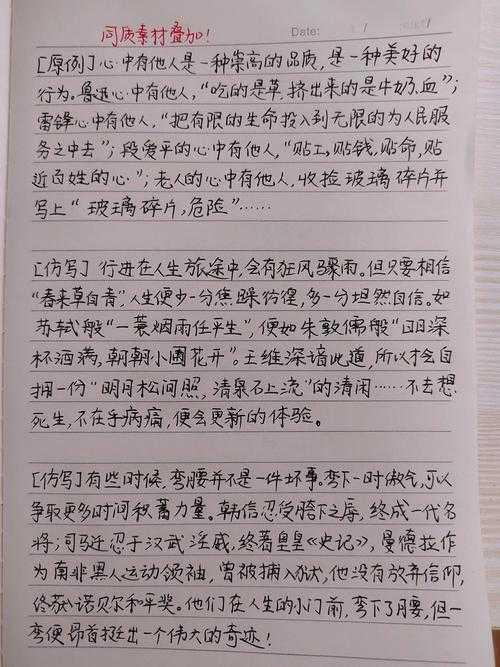 同质素材叠加！
Date:
[原例]心中有他人是一种崇高的品质,是一种美好的
行为。鲁迅心中有他人,“吃的是草,挤出来的是牛奶、血”;
雷锋心中有他人,“把有限的生命投入到无限的为人民服
务之中去”;段爱平的心中有他人,“贴工,贴钱,贴命,贴
近百姓的心”;老人的心中有他人,收捡玻璃碎片并
写上“玻璃碎片,危险”……
[仿写]行进在人生旅途中,会有狂风骤雨。但只要相信
“春来草自青”,人生便少一分焦躁彷徨,多一分坦然自信。如
苏轼般“一蓑烟雨任平生”,便如朱敦儒般“日日深
杯酒满,朝朝小圃花开”。王维深谙此道,所以才会自
拥一份“明月松间照,清泉石上流”的清闲……不去想
死生,不在乎病痛,便会更新的体验。
[仿写]有些时候,弯腰并不是一件坏事。弯下一时傲气,可以
争取更多时间积蓄力量。韩信忍受胯下之辱,终成一代名
将;司马迁忍于汉武淫威,终著皇皇《史记》,曼德拉作
为南非黑人运动领袖,曾被捕入狱,他没有放弃信仰,
终获诺贝尔和平奖。他们在人生的小门前,弯下了腰,但一
弯便昂首挺出一个伟大的奇迹！